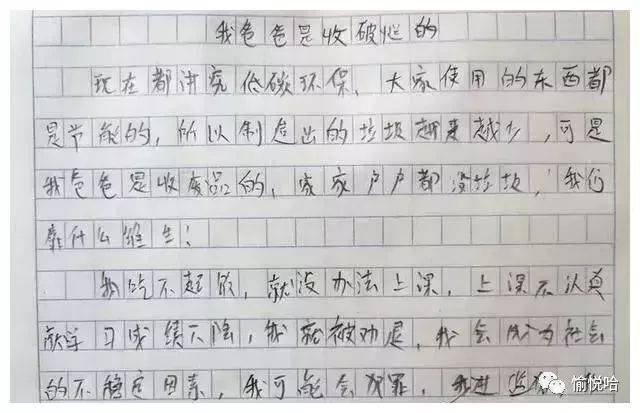 我爸爸是收破烂的
现在都讲究低碳环保，大家使用的东西都
是节能的，所以制造出的垃圾越来越少，可是
我爸爸是收废品的，家家户户都没垃圾，我们
靠什么维生！
我吃不起饭，就没办法上课，上课不认真
学习成绩下降，我就被劝退，我会成为社会
的不稳定因素，我可能会犯罪，我进监狱
愉悦哈